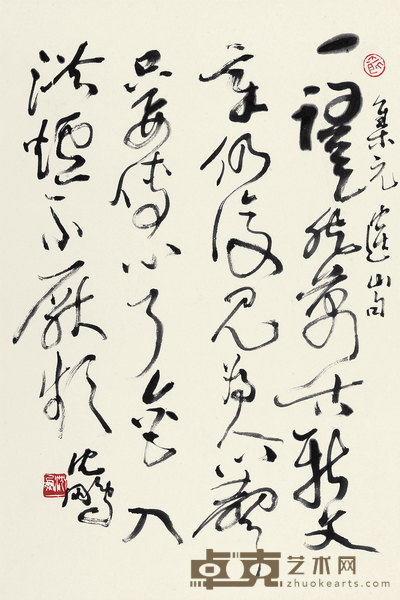 集元遺山句
一語天然萬古新文
章仍復見為人
只要傳心了金入
洪爐不厭頻
沈鵬
卓克艺术网
zhuokearts.com